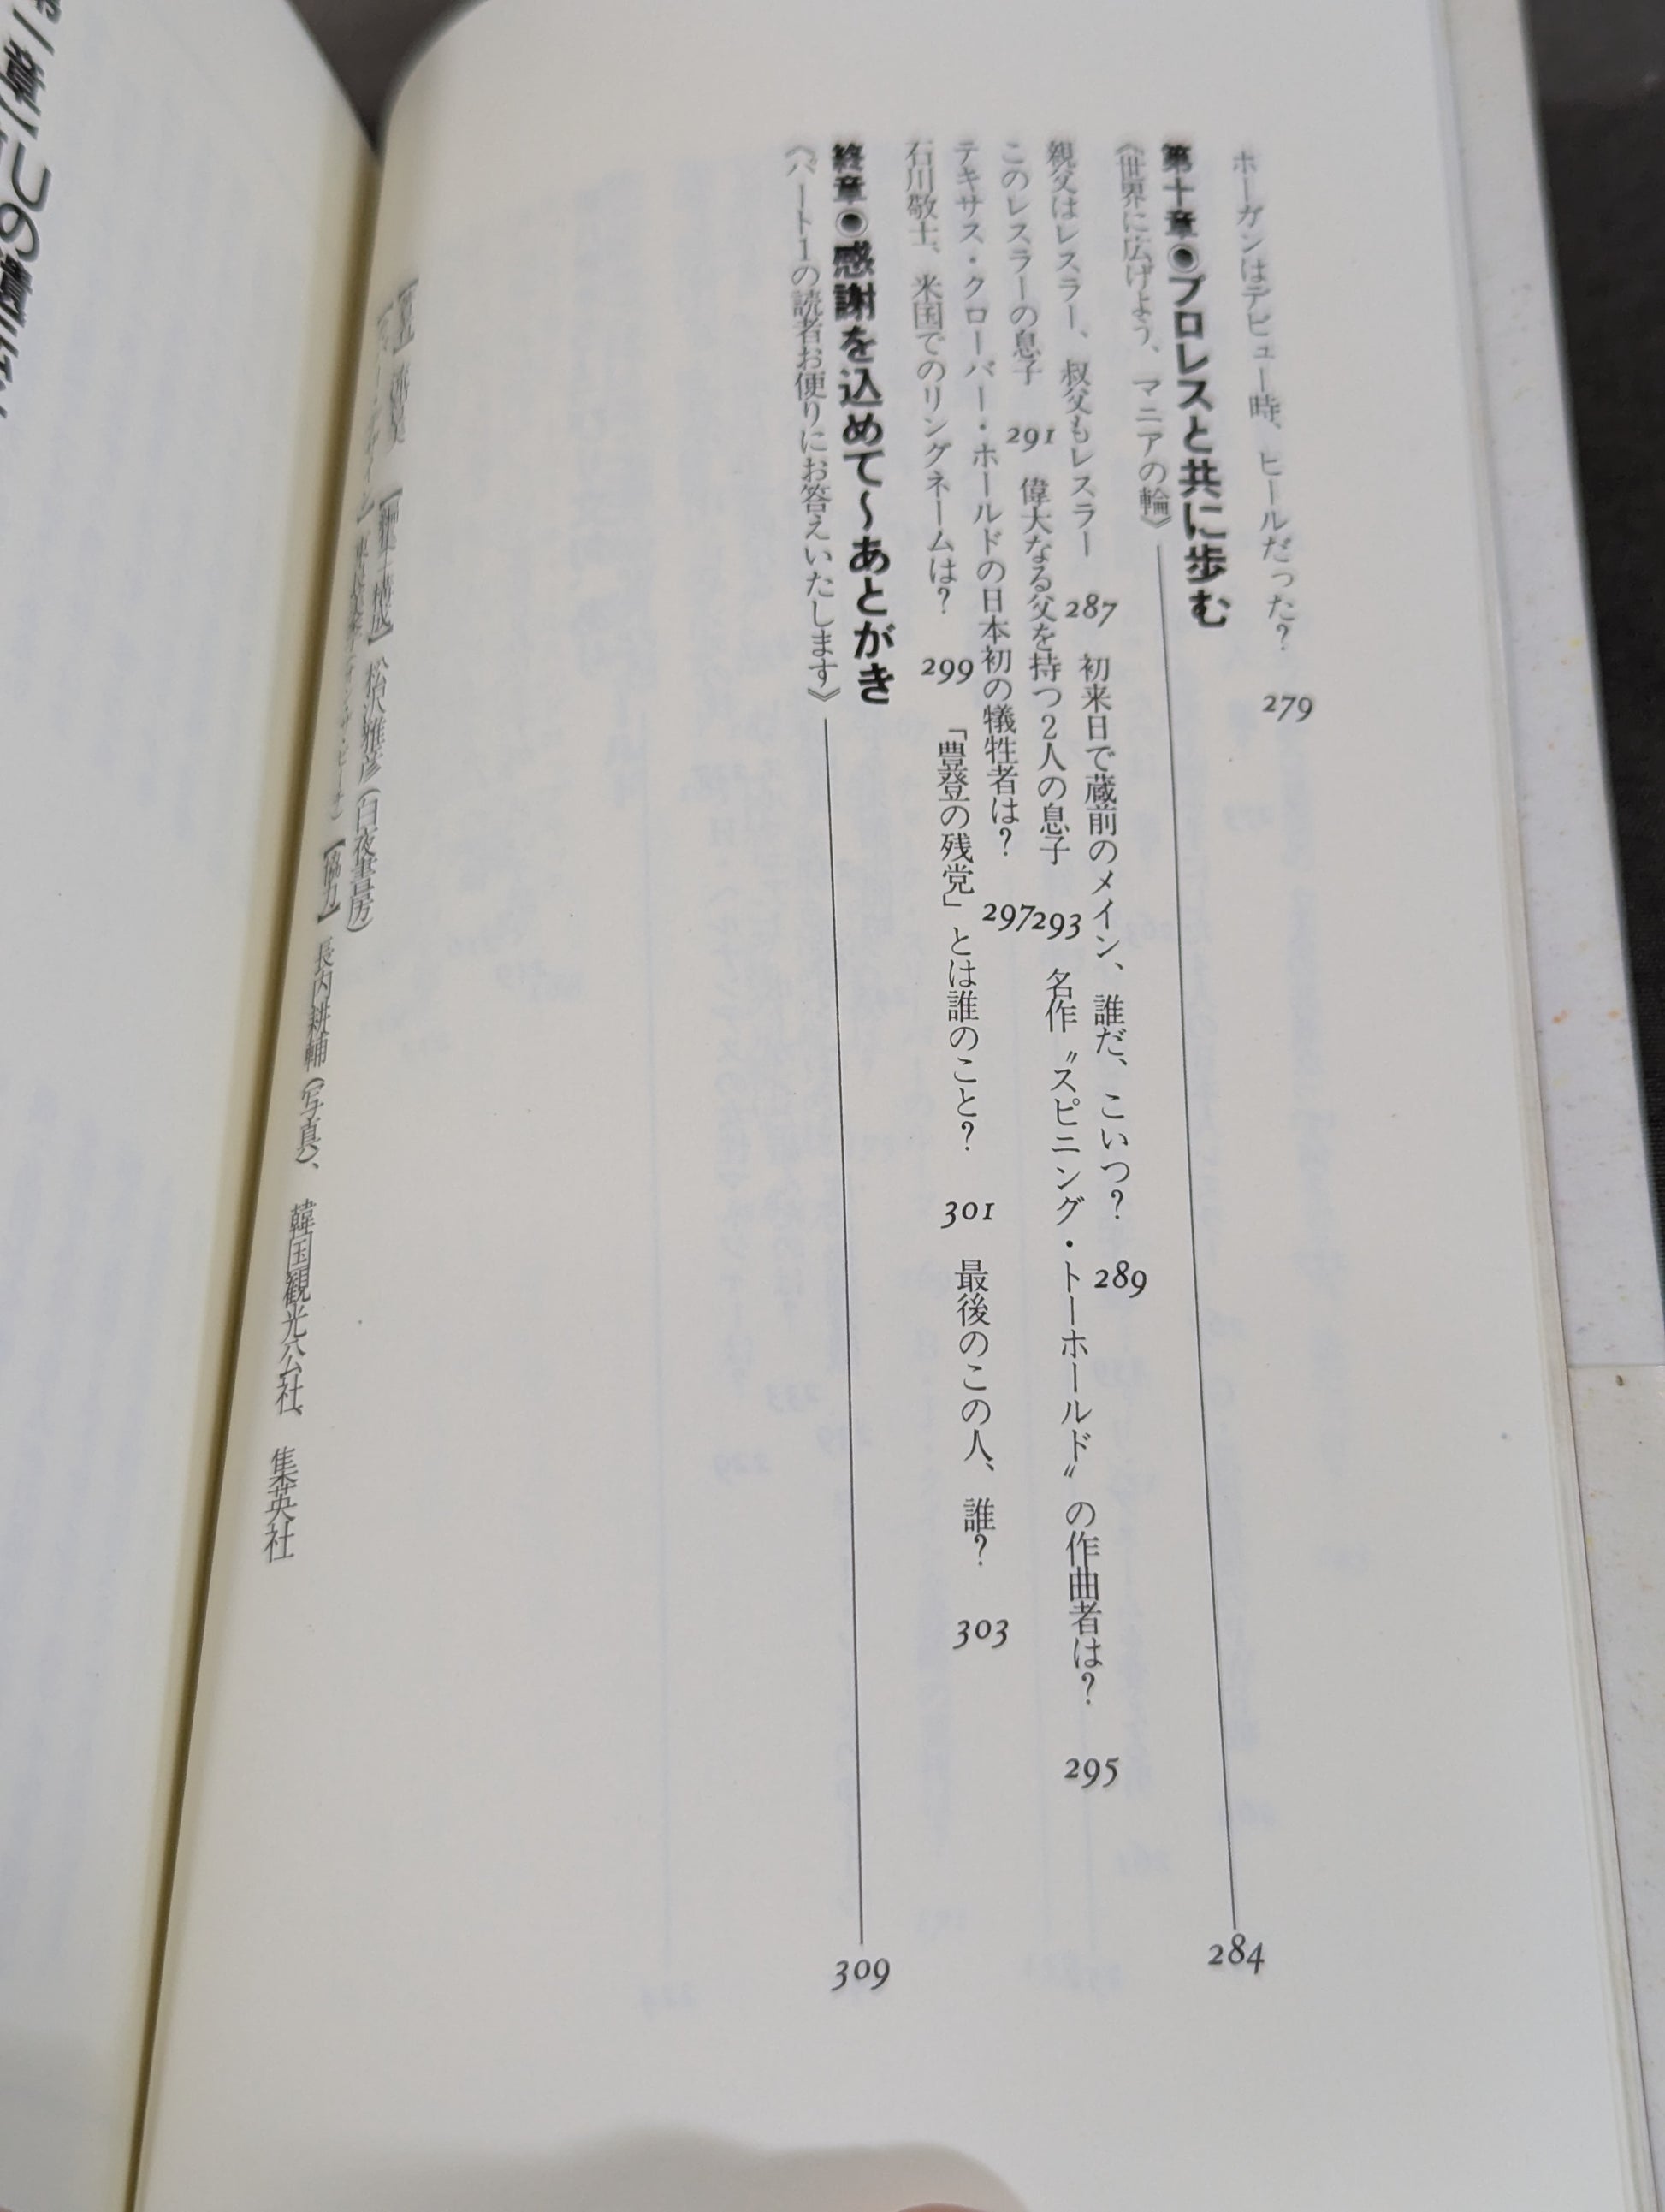 ホーガンはデビュー時、ヒールだった? 279
第十章●プロレスと共に歩む
《世界に広げよう、マニアの輪》 284
親父はレスラー、叔父もレスラー 287 初来日で蔵前のメイン、誰だ、こいつ? 289
このレスラーの息子 291 偉大なる父を持つ2人の息子 293 名作〝スピニング・トーホールド〟の作曲者は? 295
テキサス・クローバー・ホールドの日本初の犠牲者は? 297
石川敬士、米国でのリングネームは? 299 「豊登の残党」とは誰のこと? 301 最後のこの人、誰? 303
終章●感謝を込めて〜あとがき
《パート1の読者お便りにお答えいたします》 309
【編集・構成】松沢雅彦(白夜書房)
【協力】長内耕輔(写真)、韓国観光公社、集英社